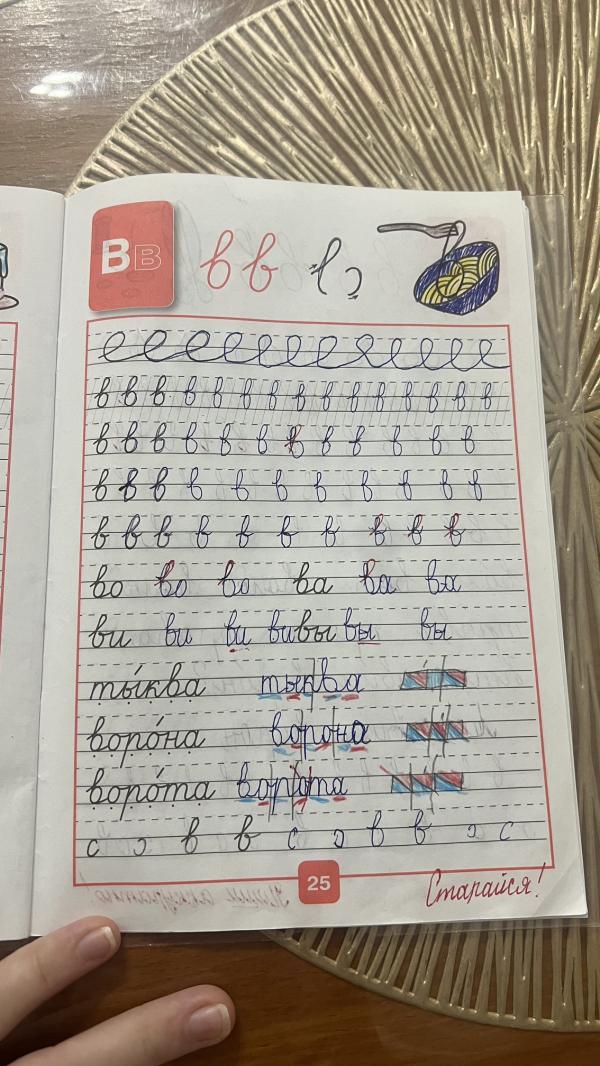 В В в в
в в в в в в в в в в в в в в
в в в в в в в в в в в в
в в в в в в в в в в в
в в в в в в в в в в
во во во ва ва ва
ви ви ви ви вы вы вы
ты́ква тыква
воро́на ворона
воро́та ворота
с в в с в в с
25
Старайся!